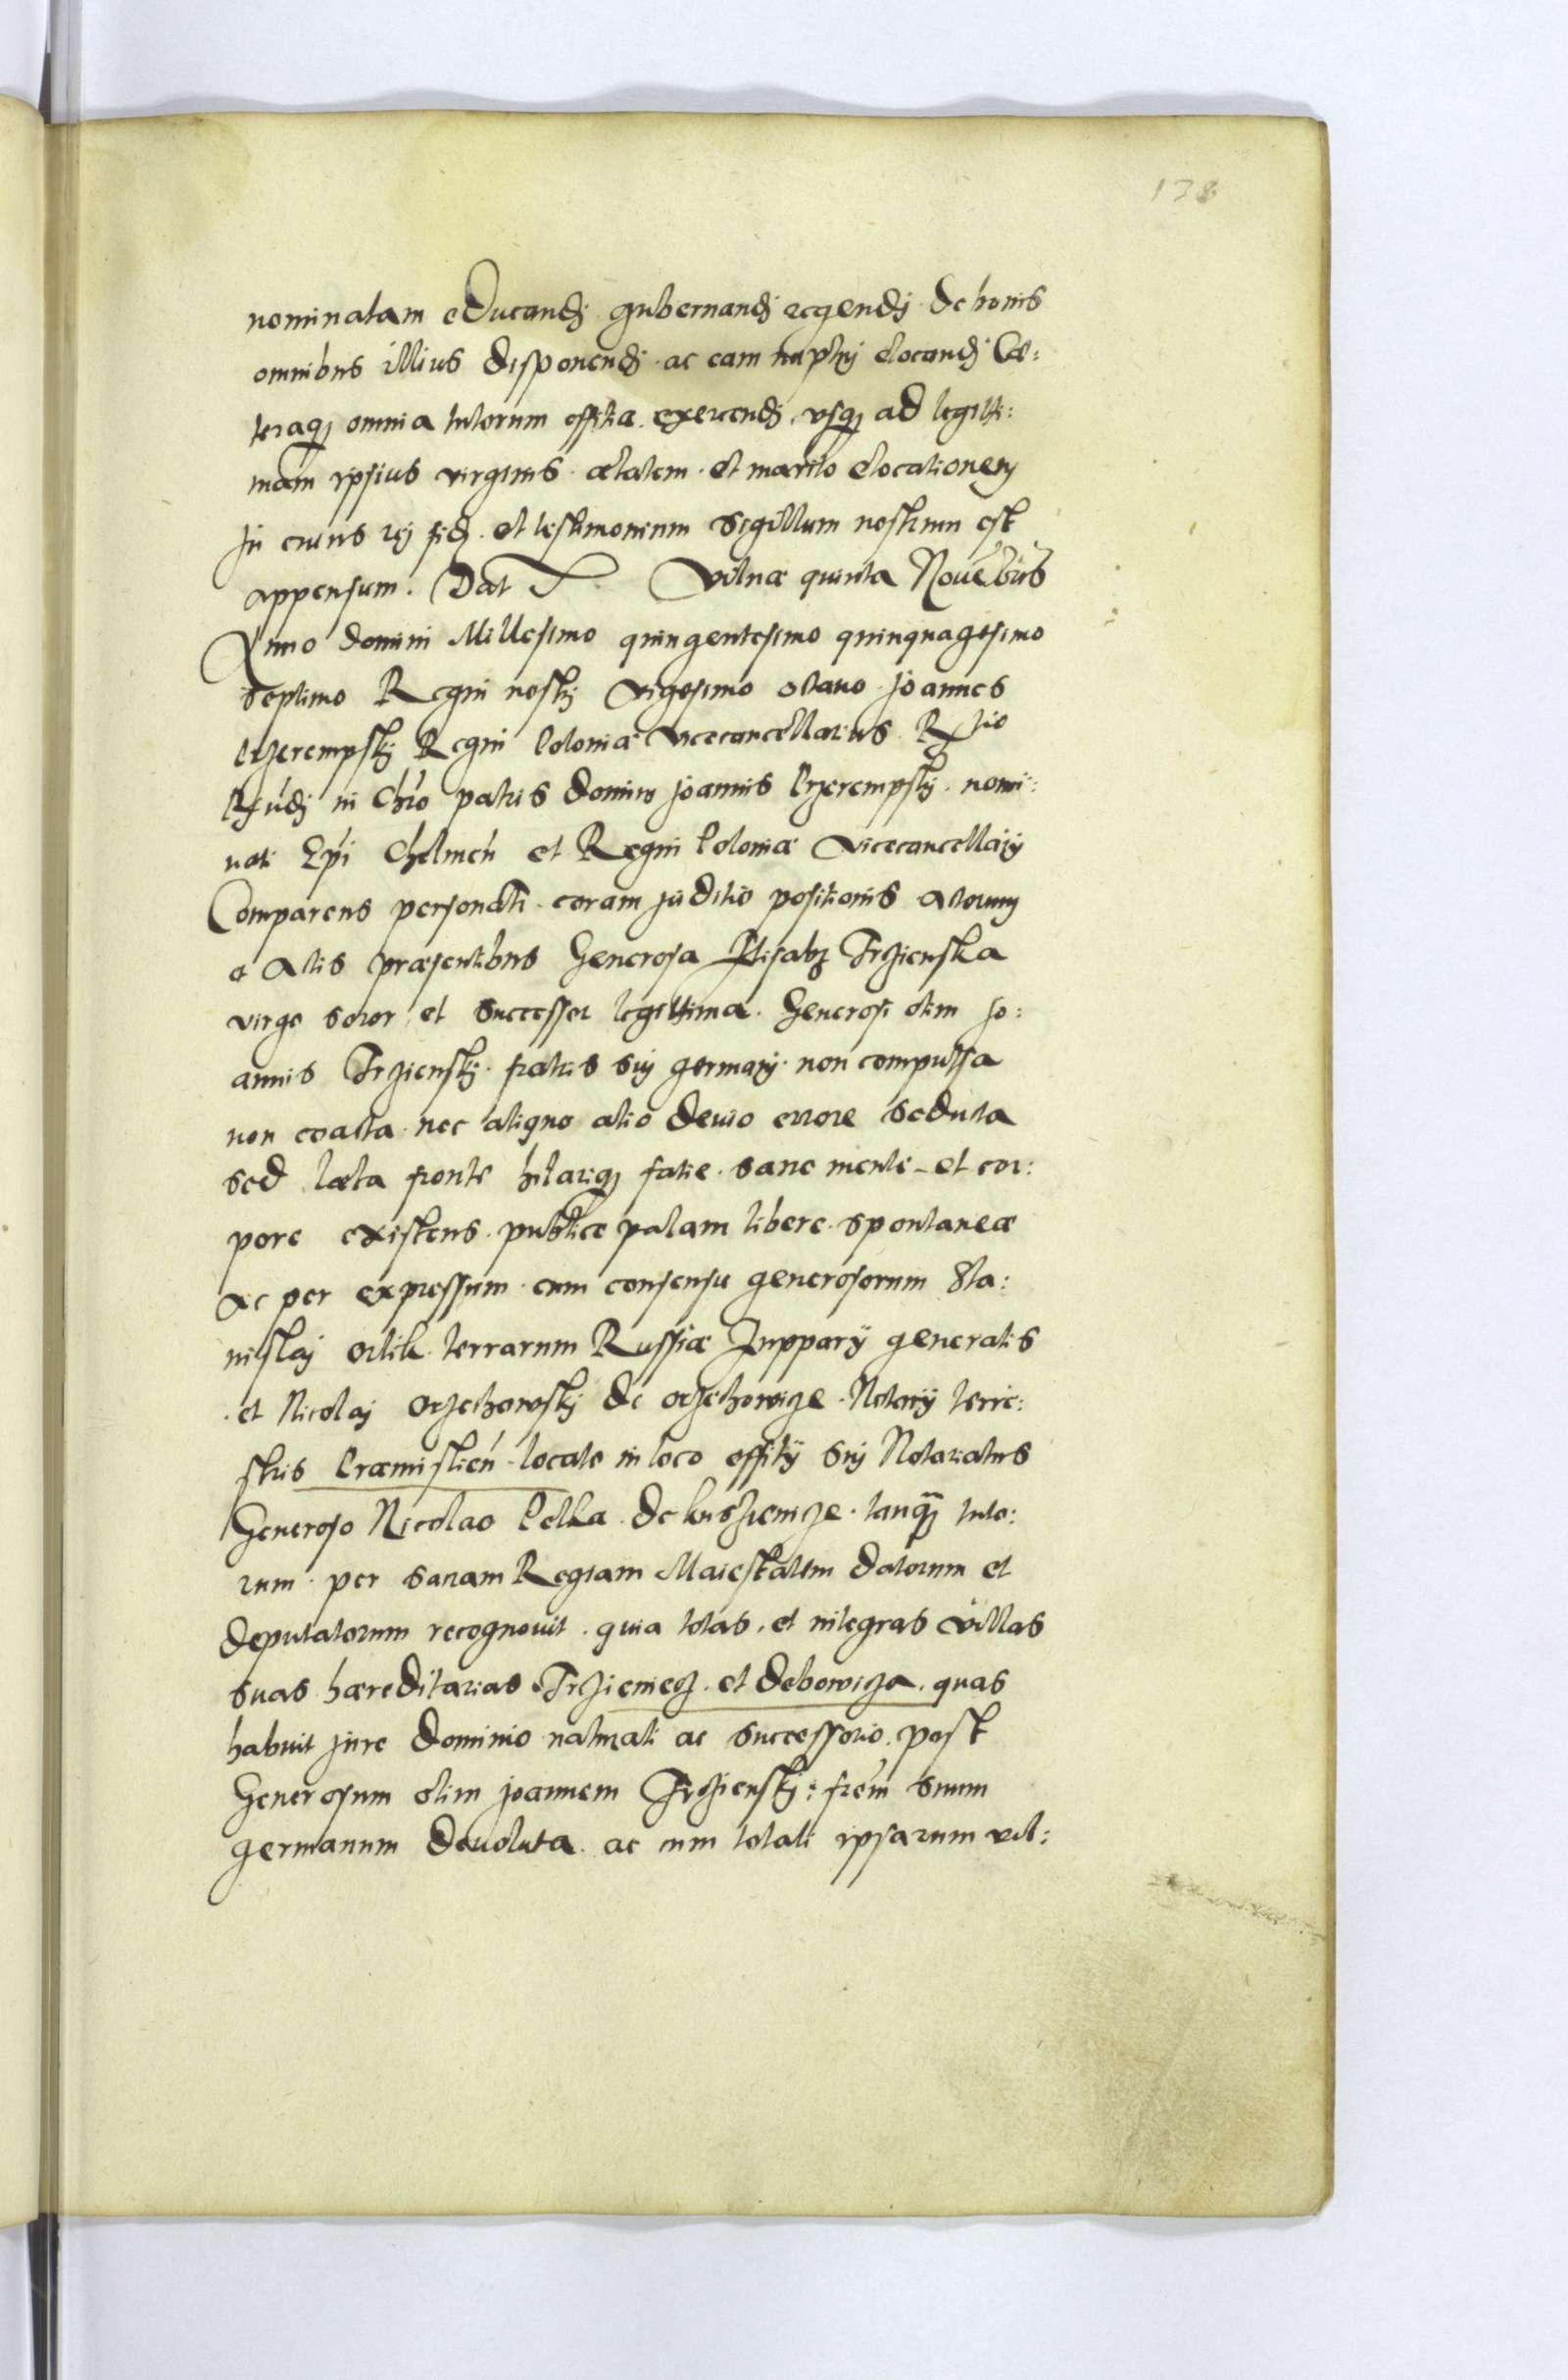 138
nominatam educandj gubernandj regendj de bonis
omnibus illius disponendj ac eam nuptuj elocandj Cæ:
teraqȝ omnia tutorum offitia exercendj vsqȝ ad legitti:
mam ipsius virginis ætatem et marito elocationem
In cuius rej fidȝ et testimonium Sigillum nostrum est
appensum. Dat Vilnæ quinta Novēbris
Anno Domini Millesimo quingentesimo quinquagesimo
septimo Regni nostrj vigesimo octauo Joannes
Przerempskj Regni Poloniæ Vicecancellarius Rltio
Rndj in Chrō patris Domini Joannis Przerempskj nomi:
nati Epī Chelmeń et Regni Poloniæ Vicecancellarij
Comparens personatr coram juditio positionis Actorum
et Actis præsentibus Generosa Elisabȝ Trzienska
virgo soror et Successor legittima Generosi olim Jo:
annis Trzienskj fratris suj germanj non compulsa
non coacta nec aliquo alio devio errore seducta
sed læta fronte hilariqȝ fatie sane mente et cor:
pore existens publice palam libere spontaneæ
ac per expressum cum consensu generosorum Sta:
nislaj orlik terrarum Russiæ Zupparij generalis
et Nicolaj Orzechowskj de orzechowicze Notarij terre:
stris Præmislień locato in loco offitij suj Notariatus
Generoso Nicolao Pelka de tanqȝ tuto:
rum per sacram Regiam Maiestatem datorum et
deputatorum recognouit quia totas et integras villas
suas hæreditarias Trzieniecz et debowicza quas
habuit jure Dominio naturali ac successorio post
Generosum olim joannem Trzienskj: frēm suum
germanum devoluta ac cum totali ipsarum vil: